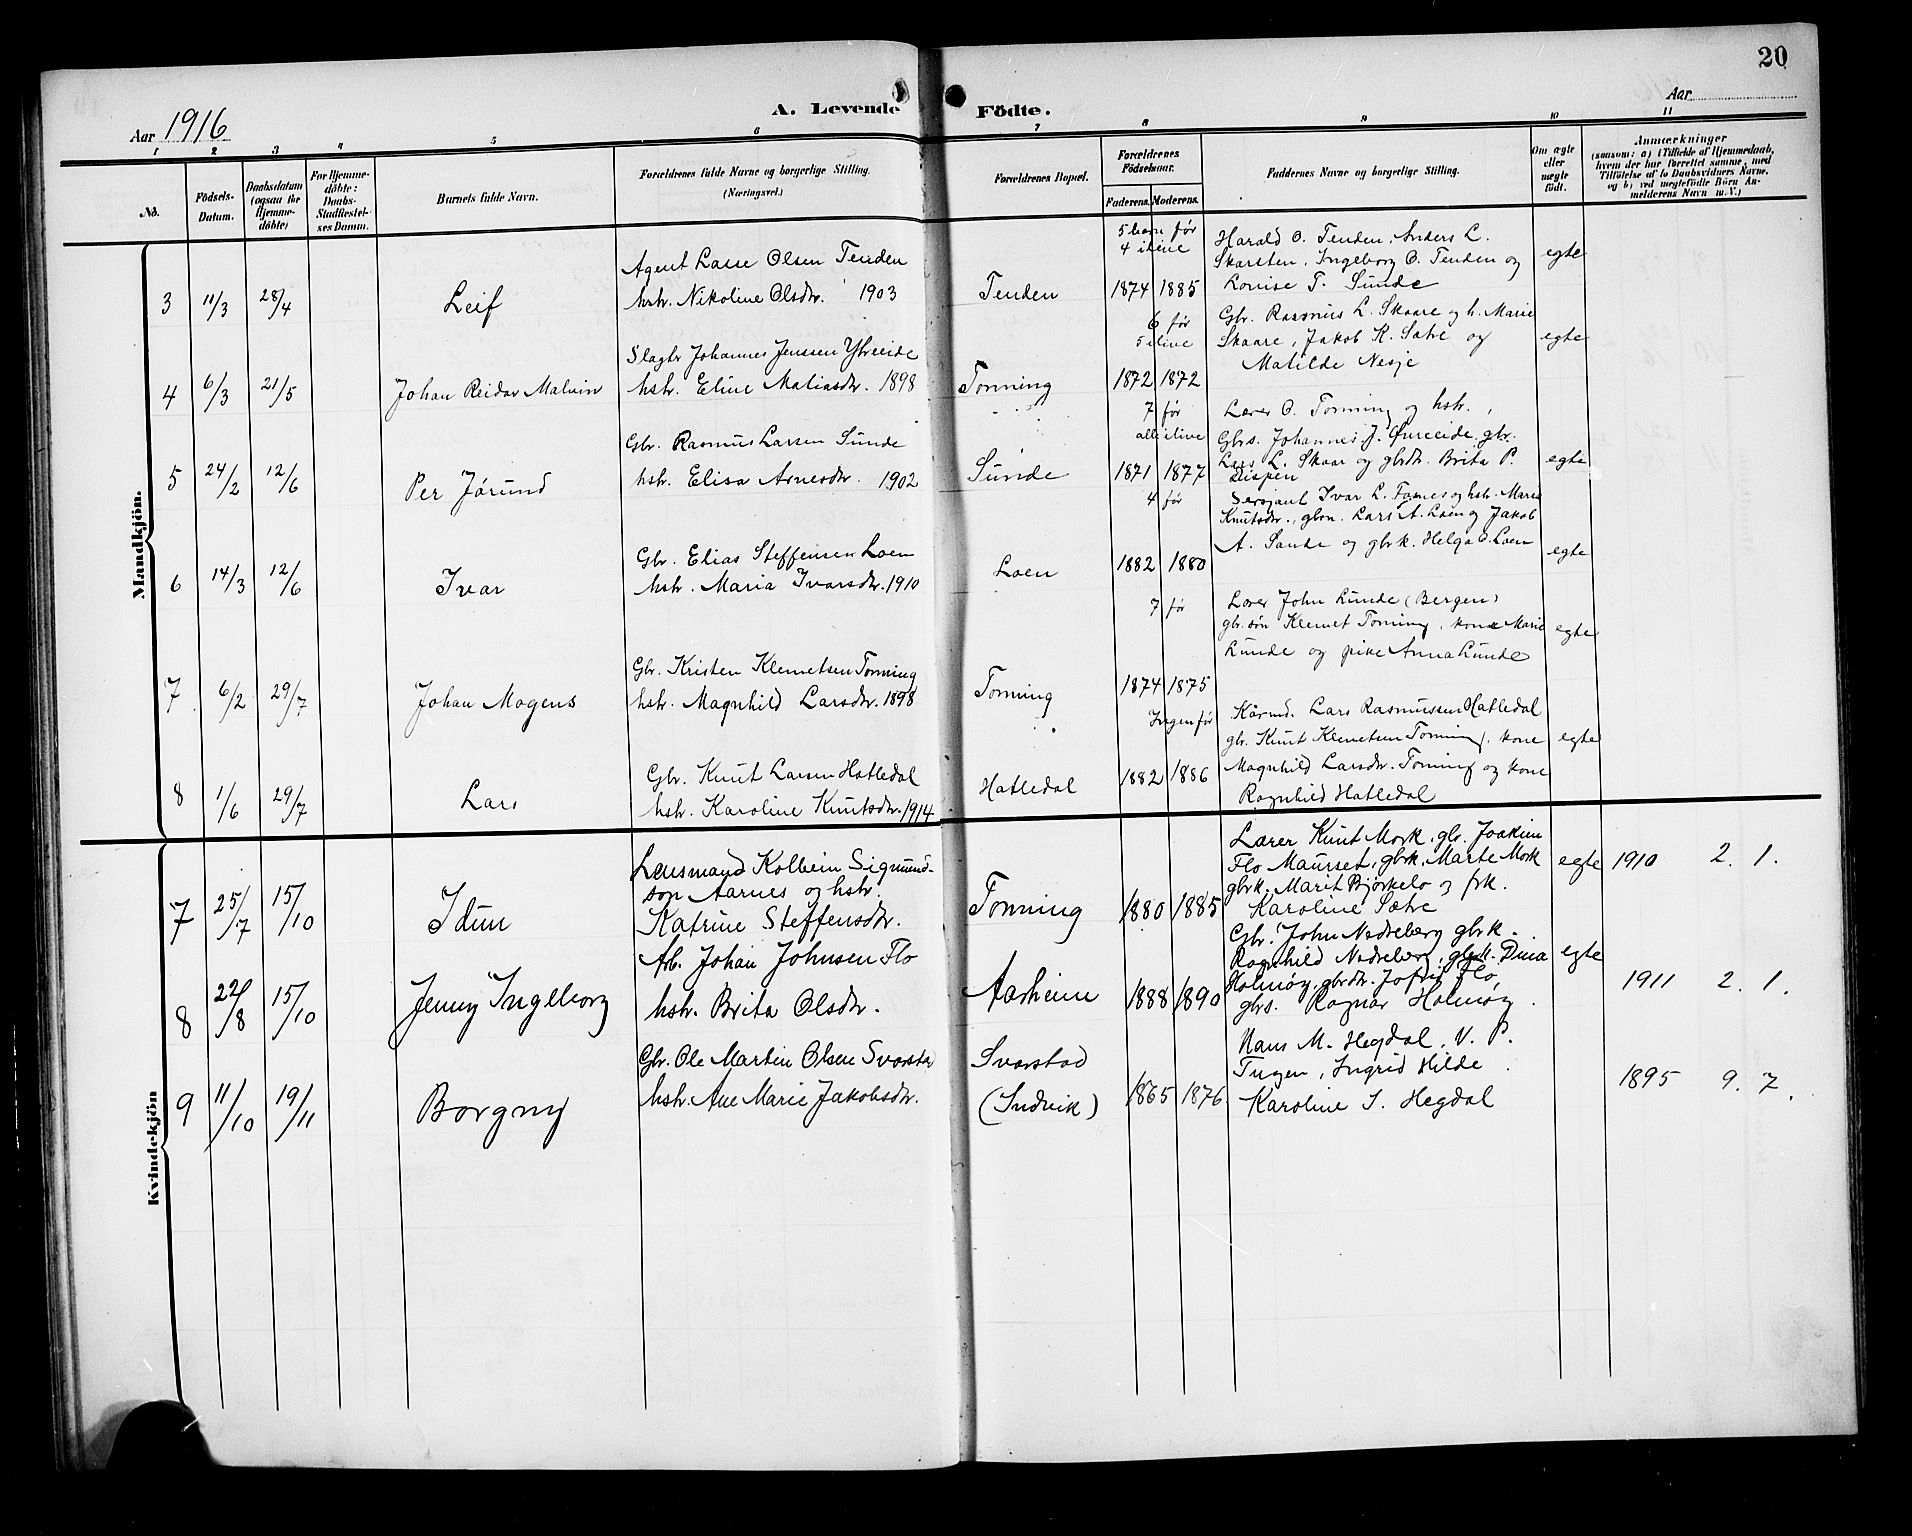 20
A. Levende Födte.
Aar 1916
Aar
1 2 3 4 5 6 7 8 9 10 11
No.
Födsels-Datum.
Daabsdatum (ogsaa for Hjemme-döbte)
For Hjemme-döbte: Daabs-Stadfæstel-ses Datum.
Barnets fulde Navn.
Forældrenes fulde Navne og borgerlige Stilling. (Næringsvei.)
Forældrenes Bopæl.
Forældrenes Födselsaar.
Faderens. Moderens.
Faddernes Navne og borgerlige Stilling.
Om ægte eller uægte født.
Anmærkninger
(saasom: a) i Tilfælde af Hjemmedaab, hvem der har forrettet samme, med Tilföielse af to Daabsvidners Navne, og b) ved uægtefödte Börn An-melderens Navn m. V.)
Mandkjön.
5 barn før
4 ilive
Harald O. Tenden, Anders L.
Skarsten, Ingeborg O. Tenden og
Louise T. Sunde
egte
Agent Lasse Olsen Tenden
3 11/3 28/4 Leif hstr. Nikoline Olsdtr. 1903 Tenden 1874 1885
6 før
5 ilive
Gbr. Rasmus L. Skaare og h. Marie
Skaare, Jakob K. Sætre og
Matilde Nesje
egte
Slagtr Johannes Jenssen Ybreeide
4 6/3 21/5 Johan Reidar Malvin hstr. Eline Matiasdtr. 1898 Tonning 1872 1872
7 før
alle ilive
Lærer O. Tonning og hstr.,
Gbrs. Johannes J. Øvreeide, gbr.
Lars L. Skaar og gbrdtr. Brita P.
egte
Gbr. Rasmus Larsen Sunde
5 24/2 12/6 Per Jørund hstr. Elisa Arnesdtr. 1902 Sunde 1871 1877
4 før
Sersjant Ivar L. Fosnes og hstr. Maria
Knutsdtr., gbrn. Lars A. Loen og Jakob
A. Sande og gbrk. Helga O. Loen
egte
Gbr. Elias Steffensen Loen
6 14/3 12/6 Ivar hstr. Maria Ivarsdtr. 1910 Loen 1882 1880
7 før
Lærer John Lunde (Bergen)
gbr.søn Klemet Tonning, kone Marie
Lunde og pike Anna Lunde
egte
Gbr. Kristen Klemetsen Tonning
7 6/2 29/7 Johan Mogens hstr. Magnhild Larsdtr. 1898 Tonning 1874 1875
Ingen før
Kårmd. Lars Rasmussen Hatledal
gbr. Knut Klemetsen Tonning, kone
Magnhild Larsdtr. Tonning og kone
Ragnhild Hatledal
egte
Gbr. Knut Larsen Hatledal
8 1/6 29/7 Lars hstr. Karoline Knutsdtr. 1914 Hatledal 1882 1886
Kvindekjön
Lærer Knut Mork, gbr. Joakim
Flo Maurset, gbrk. Marte Mork
gbrk. Marit Bjørkelo og frk.
Karoline Sætre
egte 1910 2. 1.
Lensmand Kolbein Sigmund-
son Aarnes og hstr.
7 25/7 15/10 Idun Katrine Steffensdtr. Tonning 1880 1885
Gbr. John Nedreberg gbrk.
Ragnhild Nedreberg, gbrk. Dina
Holmøy, gbrdtr. Jofrid Flo,
gbrs. Ragnar Holmøy.
egte 1911 2. 1.
Arb. Johan Johnsen Flo
8 22/8 15/10 Jenny Ingeborg hstr. Brita Olsdtr. Aarheim 1888 1890
Hans M. Hegdal, V. P.
Tugen, Ingrid Hilde
Karoline J. Hegdal
1895 9. 7.
Gbr. Ole Martin Olsen Svorstad
9 11/10 19/11 Borgny hstr. Ane Marie Jakobsdtr. Svarstad (Indvik) 1865 1876